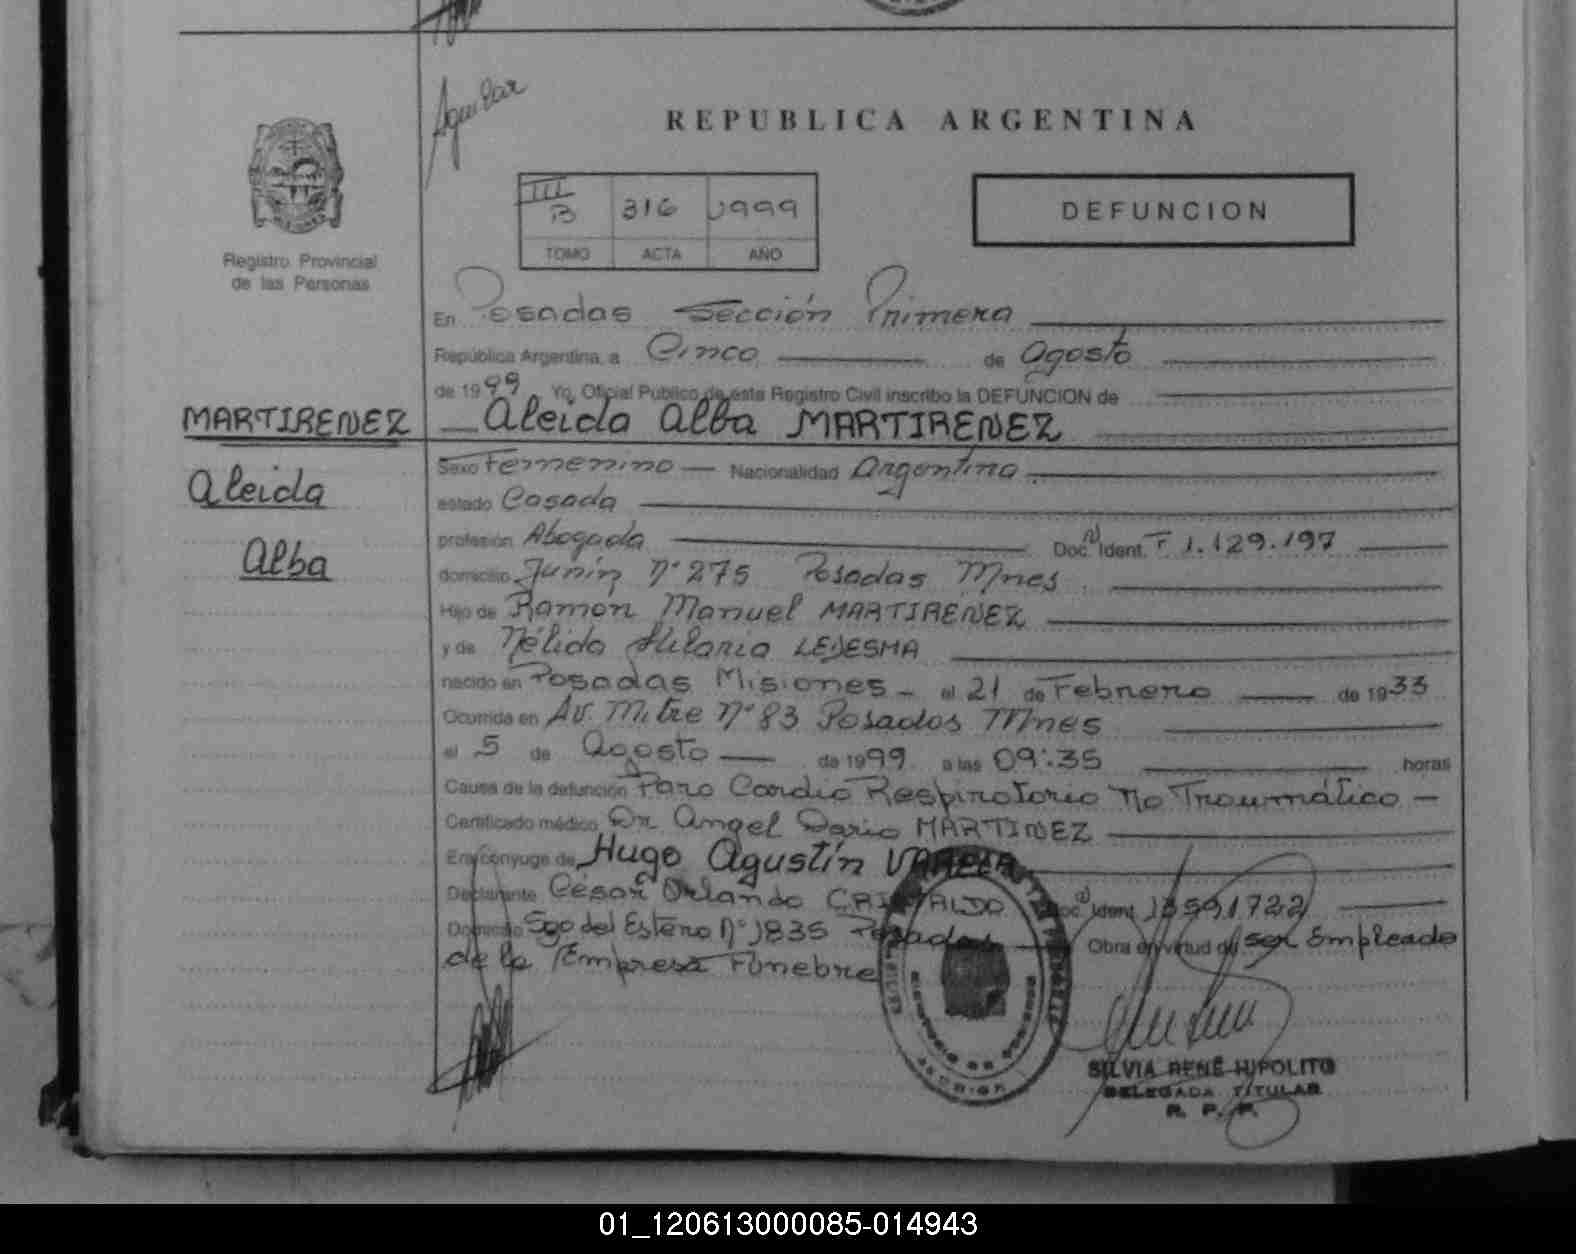 Aguilar
REPUBLICA ARGENTINA
III B 316 1999
TOMO ACTA AÑO
DEFUNCION
Registro Provincial
de las Personas
En Posadas Sección Primera
República Argentina, a Cinco de Agosto
de 1999 Yo, Oficial Público de este Registro Civil inscribo la DEFUNCION de
MARTIRENEZ
Aleida
Alba
Aleida Alba MARTIRENEZ
Sexo Femenino Nacionalidad Argentina
estado Casada
profesión Abogada Doc. Ident. F 1.129.197
domicilio Junín Nº 275 Posadas Mnes
Hijo de Ramon Manuel MARTIRENEZ
y de Nélida Hilaria LEDESMA
nacido en Posadas Misiones - el 21 de Febrero de 1933
Ocurrida en Av. Mitre Nº 83 Posadas Mnes
el 5 de Agosto de 1999 a las 09:35 horas
Causa de la defunción Paro Cardio Respiratorio No Traumático -
Certificado médico Dr Angel Dario MARTINEZ
Era cónyuge de Hugo Agustín
Declarante César Orlando Doc. Ident.
Domicilio Sgo del Estero Nº 1835 Posadas Obra en virtud de ser Empleado
de la Empresa Funebre
SILVIA RENÉ HIPOLITO
DELEGADA TITULAR
R. P. P.
01_120613000085-014943